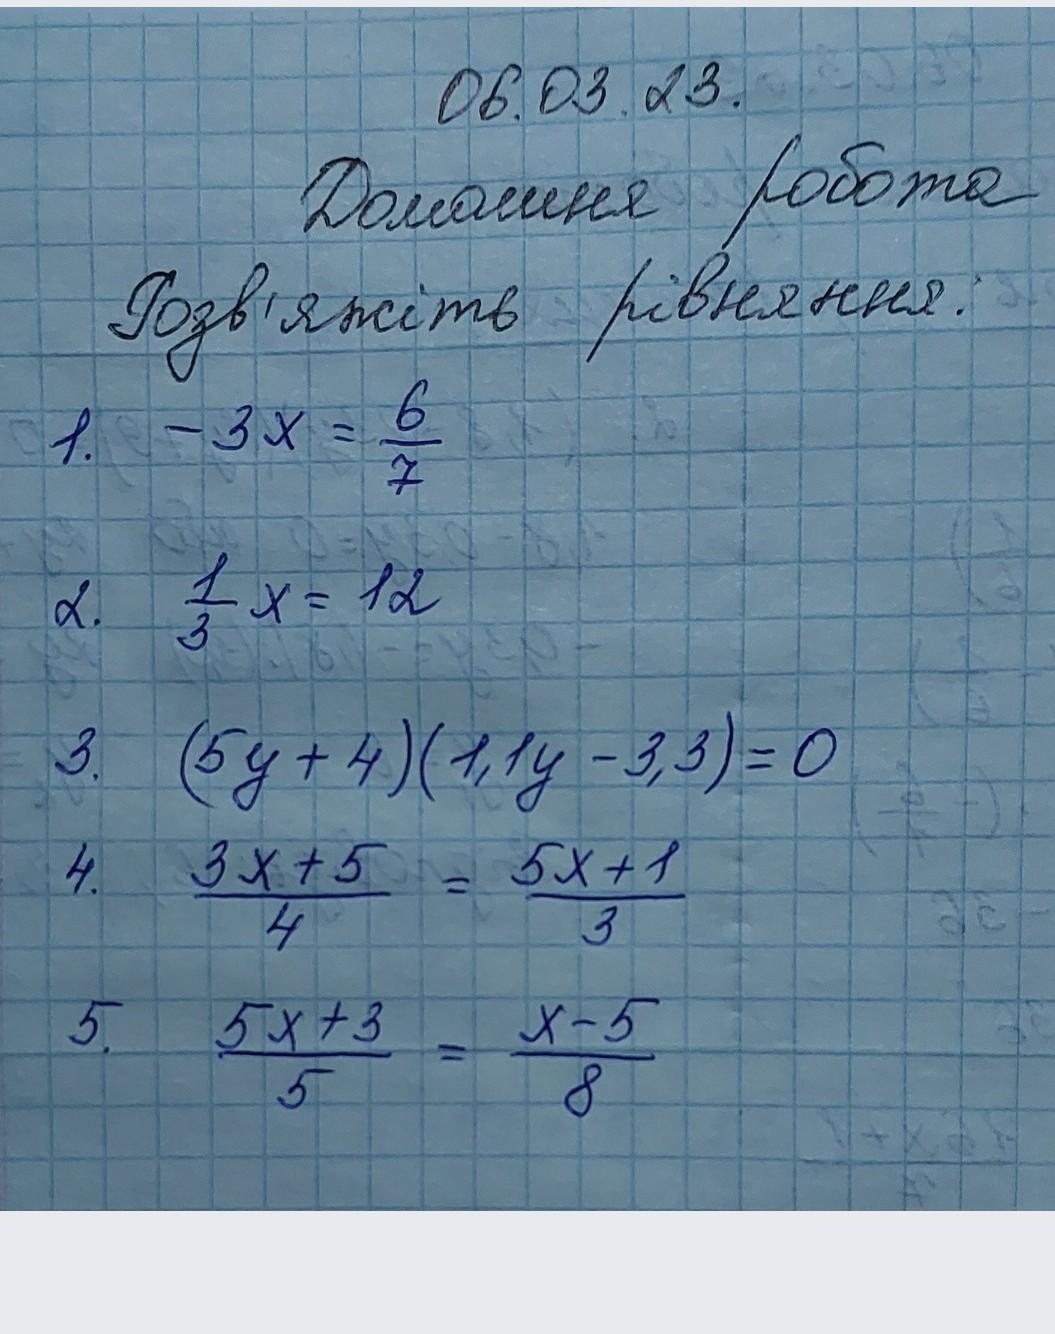 06.03.23.
Домашня робота
Розв'яжіть рівняння:
1. -3x = 6/7
2. 1/3 x = 12
3. (5y + 4)(1,1y - 3,3) = 0
4. 3x+5/4 = 5x+1/3
5. 5x+3/5 = x-5/8